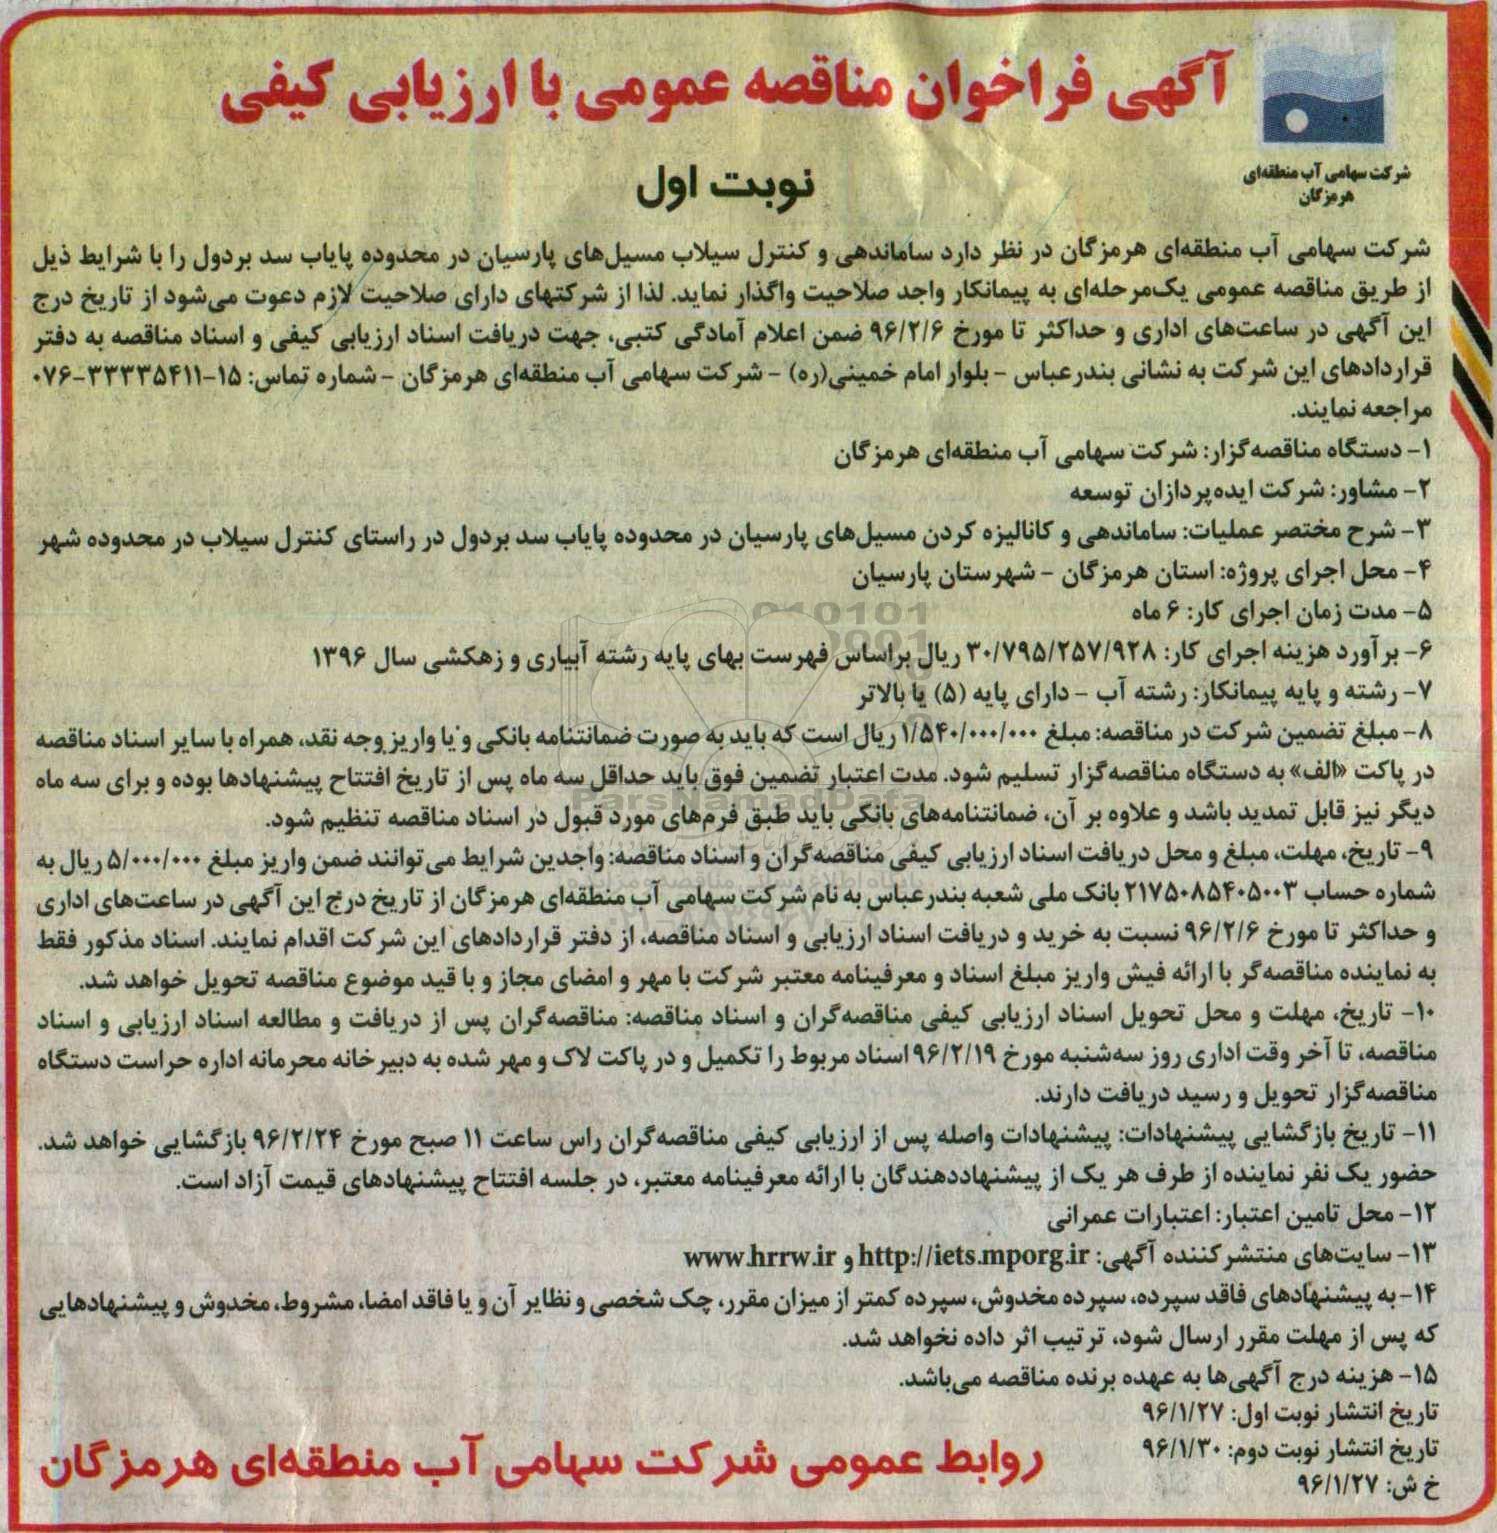 آگهی فراخوان مناقصه عمومی با ارزیابی کیفی
شرکت سهامی آب منطقه‌ای
هرمزگان
نوبت اول
شرکت سهامی آب منطقه‌ای هرمزگان در نظر دارد ساماندهی و کنترل سیلاب مسیل‌های پارسیان در محدوده پایاب سد بردول را با شرایط ذیل
از طریق مناقصه عمومی یک‌مرحله‌ای به پیمانکار واجد صلاحیت واگذار نماید. لذا از شرکتهای دارای صلاحیت لازم دعوت می‌شود از تاریخ درج
این آگهی در ساعت‌های اداری و حداکثر تا مورخ ۹۶/۲/۶ ضمن اعلام آمادگی کتبی، جهت دریافت اسناد ارزیابی کیفی و اسناد مناقصه به دفتر
قراردادهای این شرکت به نشانی بندرعباس - بلوار امام خمینی(ره) - شرکت سهامی آب منطقه‌ای هرمزگان - شماره تماس: ۱۵-۳۳۳۳۵۴۱۱-۰۷۶
مراجعه نمایند.
۱- دستگاه مناقصه‌گزار: شرکت سهامی آب منطقه‌ای هرمزگان
۲- مشاور: شرکت ایده‌پردازان توسعه
۳- شرح مختصر عملیات: ساماندهی و کانالیزه کردن مسیل‌های پارسیان در محدوده پایاب سد بردول در راستای کنترل سیلاب در محدوده شهر
۴- محل اجرای پروژه: استان هرمزگان - شهرستان پارسیان
۵- مدت زمان اجرای کار: ۶ ماه
۶- برآورد هزینه اجرای کار: ۳۰/۷۹۵/۲۵۷/۹۲۸ ریال براساس فهرست بهای پایه رشته آبیاری و زهکشی سال ۱۳۹۶
۷- رشته و پایه پیمانکار: رشته آب - دارای پایه (۵) یا بالاتر
۸- مبلغ تضمین شرکت در مناقصه: مبلغ ۱/۵۴۰/۰۰۰/۰۰۰ ریال است که باید به صورت ضمانتنامه بانکی و یا واریز وجه نقد، همراه با سایر اسناد مناقصه
در پاکت «الف» به دستگاه مناقصه‌گزار تسلیم شود. مدت اعتبار تضمین فوق باید حداقل سه ماه پس از تاریخ افتتاح پیشنهادها بوده و برای سه ماه
دیگر نیز قابل تمدید باشد و علاوه بر آن، ضمانتنامه‌های بانکی باید طبق فرم‌های مورد قبول در اسناد مناقصه تنظیم شود.
ParsNamadData
۹- تاریخ، مهلت، مبلغ و محل دریافت اسناد ارزیابی کیفی مناقصه‌گران و اسناد مناقصه: واجدین شرایط می‌توانند ضمن واریز مبلغ ۵/۰۰۰/۰۰۰ ریال به
شماره حساب ۲۱۷۵۰۸۵۴۰۵۰۰۳ بانک ملی شعبه بندرعباس به نام شرکت سهامی آب منطقه‌ای هرمزگان از تاریخ درج این آگهی در ساعت‌های اداری
و حداکثر تا مورخ ۹۶/۲/۶ نسبت به خرید و دریافت اسناد ارزیابی و اسناد مناقصه، از دفتر قراردادهای این شرکت اقدام نمایند. اسناد مذکور فقط
به نماینده مناقصه‌گر با ارائه فیش واریز مبلغ اسناد و معرفینامه معتبر شرکت با مهر و امضای مجاز و با قید موضوع مناقصه تحویل خواهد شد.
۱۰- تاریخ، مهلت و محل تحویل اسناد ارزیابی کیفی مناقصه‌گران و اسناد مناقصه: مناقصه‌گران پس از دریافت و مطالعه اسناد ارزیابی و اسناد
مناقصه، تا آخر وقت اداری روز سه‌شنبه مورخ ۹۶/۲/۱۹ اسناد مربوط را تکمیل و در پاکت لاک و مهر شده به دبیرخانه محرمانه اداره حراست دستگاه
مناقصه‌گزار تحویل و رسید دریافت دارند.
۱۱- تاریخ بازگشایی پیشنهادات: پیشنهادات واصله پس از ارزیابی کیفی مناقصه‌گران راس ساعت ۱۱ صبح مورخ ۹۶/۲/۲۴ بازگشایی خواهد شد.
حضور یک نفر نماینده از طرف هر یک از پیشنهاددهندگان با ارائه معرفینامه معتبر، در جلسه افتتاح پیشنهادهای قیمت آزاد است.
۱۲- محل تامین اعتبار: اعتبارات عمرانی
۱۳- سایت‌های منتشرکننده آگهی: http://iets.mporg.ir و www.hrrw.ir
۱۴- به پیشنهادهای فاقد سپرده، سپرده مخدوش، سپرده کمتر از میزان مقرر، چک شخصی و نظایر آن و یا فاقد امضا، مشروط، مخدوش و پیشنهادهایی
که پس از مهلت مقرر ارسال شود، ترتیب اثر داده نخواهد شد.
۱۵- هزینه درج آگهی‌ها به عهده برنده مناقصه می‌باشد.
تاریخ انتشار نوبت اول: ۹۶/۱/۲۷
تاریخ انتشار نوبت دوم: ۹۶/۱/۳۰
خ ش: ۹۶/۱/۲۷
روابط عمومی شرکت سهامی آب منطقه‌ای هرمزگان